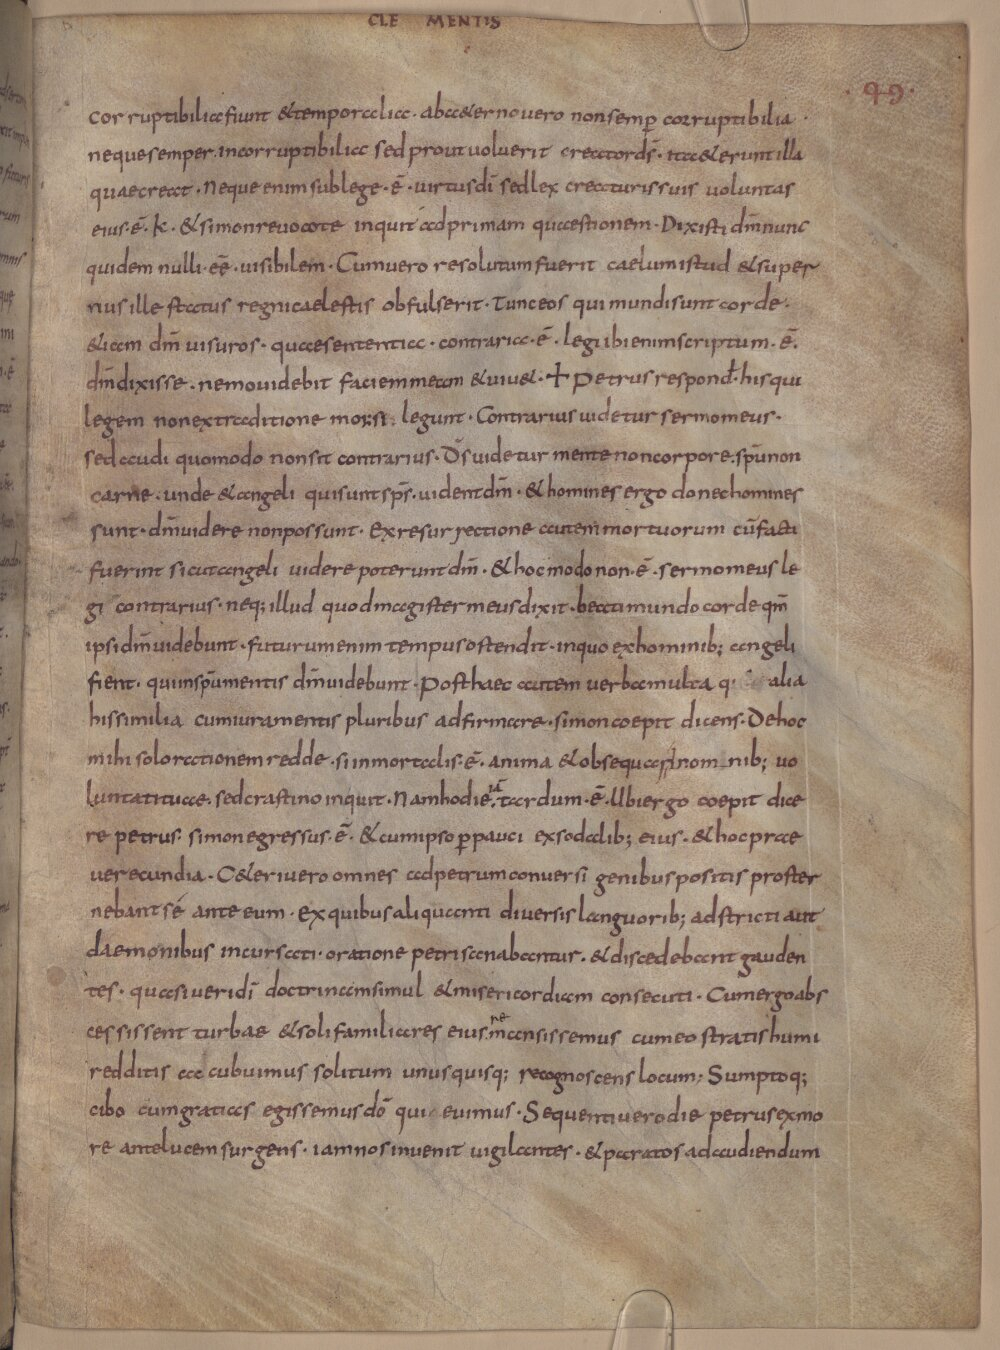 CLE MENTIS
· 49 ·
corruptibilia fiunt & temporalia · ab aeterno vero non semp̄ corruptibilia ·
neque semper incorruptibilia sed prout voluerit creator dš · ita & erunt illa
quae creat · Neque enim sub lege · ē · virtus dī sed lex creaturis suis voluntas
eius · ē · k · & simon revocate inquit ad primam quaestionem · Dixisti dm̄ nunc
quidem nulli · eē · visibilem · Cum vero resolutum fuerit caelum istud & supe
rius ille status regni caelestis obfulserit · tunc eos qui mundi sunt corde ·
&iam dm̄ visuros · quae sententia · contraria · ē · legi ibi enim scriptum · ē ·
dm̄ dixisse · nemo videbit faciem meam & viv& · + Petrus respond̄ · his qui
legem non ex traditione mosi legunt · Contrarius videtur sermo meus ·
sed audi quomodo non sit contrarius · Dš videtur mente non corpore · spū non
carne · unde & angeli qui sunt spš · vident dm̄ · & homines ergo donec homines
sunt · dm̄ videre non possunt · Ex resurrectione autem mortuorum cū facti
fuerint sicut angeli videre poterunt dm̄ · & hoc modo non · ē · sermo meus le
gi contrarius · neq; illud quod magister meus dixit · beati mundo corde qm̄
ipsi dm̄ videbunt · futurum enim tempus ostendit · in quo ex hominib; angeli
fient · qui in spū mentis dm̄ videbunt · Post haec autem verba multa alia
his similia cum iuramentis pluribus adfirmare · simon coepit dicens · De hoc
mihi solo rationem redde · si inmortalis · ē · anima & obsequar omnib; vo
luntati tuae · sed crastino inquit · Nam hodie iā tardum · ē · Ubi ergo coepit dice
re petrus · simon egressus · ē · & cum ipso p̄pauci ex sodalib; eius · & hoc prae
verecundia · C&eri vero omnes ad petrum conversi genibus positis proster
nebant sé ante eum · Ex quibus aliquanti diversis languorib; adstricti aut
daemonibus incursati · oratione petri sanabantur · & discedebant gauden
tes · quasi veri dī doctrinam simul & misericordiam consecuti · Cum ergo abs
cessissent turbae & soli familiares eius remansissemus cum eo stratis humi
redditis accubuimus solitum unusquisq; recognoscens locum · Sumptoq;
cibo cum gratias egissemus dō quievimus · Sequenti vero die petrus ex mo
re ante lucem surgens · iam nos invenit vigilantes · & paratos ad audiendum